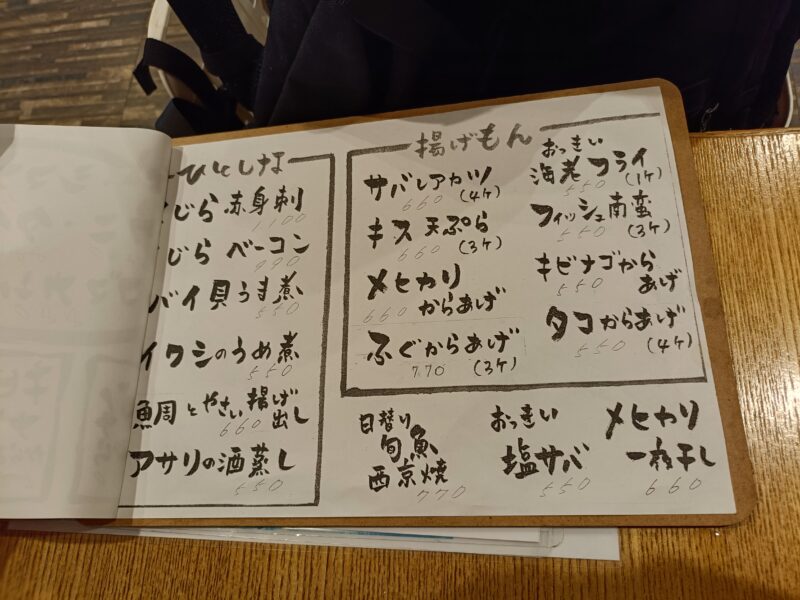 ひとしな
じら赤身刺
1100
じら ベーコン
990
バイ貝うま煮
550
イワシのうめ煮
550
魚周とやさい揚げ出し
660
アサリの酒蒸し
550
揚げもん
サバレアカツ
660 (4ケ)
キス天ぷら
660 (3ケ)
メヒカリ
660 からあげ
ふぐからあげ
770 (3ケ)
おっきい
海老フライ
550 (1ケ)
フィッシュ南蛮
550 (3ケ)
キビナゴから
550 あげ
タコからあげ
550 (4ケ)
日替り
旬魚
西京焼
770
おっきい
塩サバ
550
メヒカリ
一夜干し
660